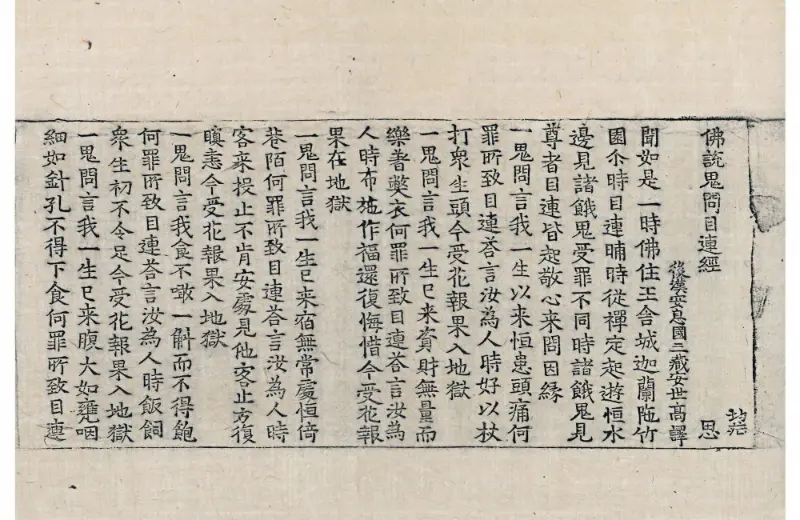 佛說鬼問目連經 思
後漢安息國三藏安世高譯
聞如是一時佛住王舍城迦蘭陁竹
園尒時目連晡時從禪定起遊恒水
邊見諸餓鬼受罪不同時諸餓鬼見
尊者目連皆起敬心来問因緣
一鬼問言我一生以来恒患頭痛何
罪所致目連荅言汝為人時好以杖
打衆生頭今受花報果入地獄
一鬼問言我一生已来資財無量而
樂著弊衣何罪所致目連荅言汝為
人時布施作福還復悔惜今受花報
果在地獄
一鬼問言我一生已来宿無常處恒倚
巷陌何罪所致目連荅言汝為人時
客来投止不肯安處見他客止方復
瞋恚今受花報果入地獄
一鬼問言我食不噉一斛而不得飽
何罪所致目連荅言汝為人時飯飼
衆生初不令足今受花報果入地獄
一鬼問言我一生已来腹大如甕咽
細如針孔不得下食何罪所致目連